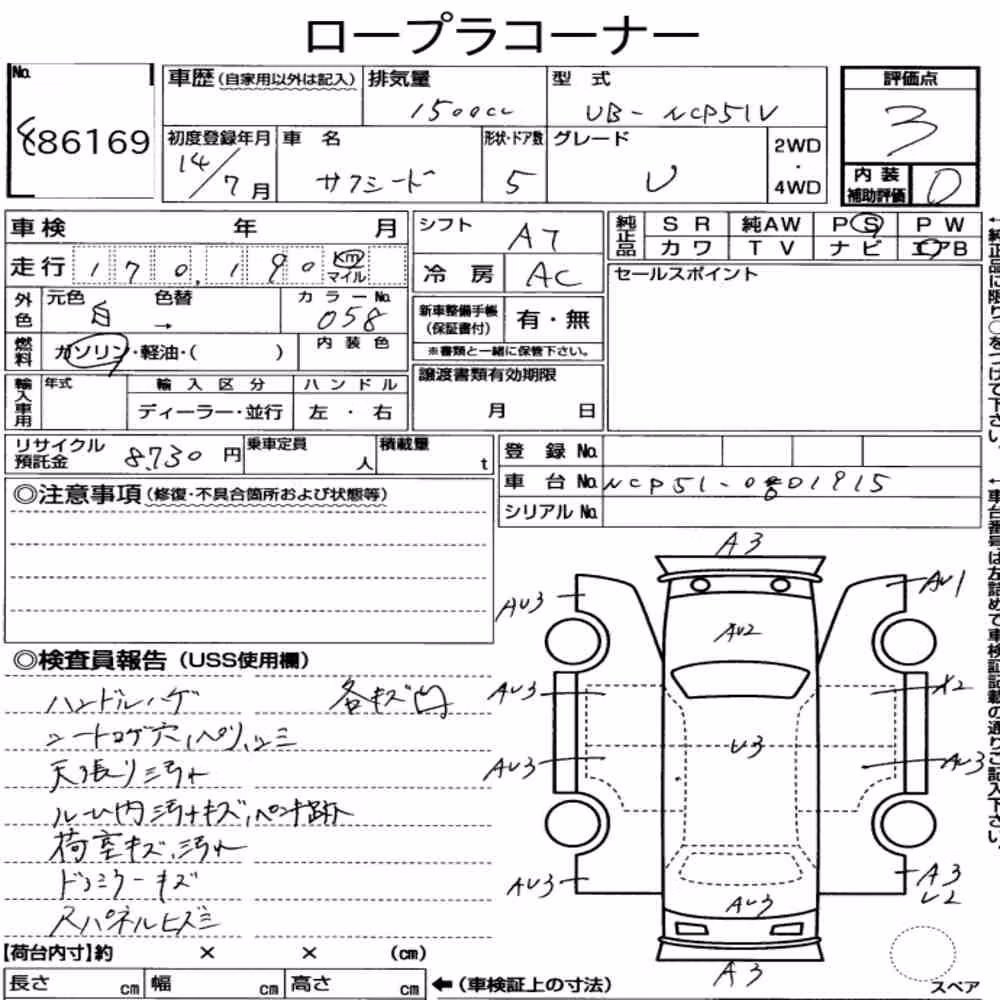 ロープラコーナー
No.
886169
車歴(自家用以外は記入) 排気量 型 式
1500cc UB-NCP51V
初度登録年月 車 名 形状・ドア数 グレード 2WD
・
4WD
14/7月 サクシード 5 U
評価点
3
内 装
補助評価 D
車検 年 月
走行 170,190 km
マイル
外色 元色 色替 カラーNo.
白 → 058
燃料 ガソリン・軽油・( ) 内 装 色
輸入車用 年式 輸 入 区 分 ハ ン ド ル
ディーラー・並行 左 ・ 右
シフト AT
冷 房 AC
新車整備手帳
(保証書付) 有・無
※書類と一緒に保管下さい。
譲渡書類有効期限
月 日
純正品 S R 純AW P S P W
カ ワ T V ナ ビ エアB
セールスポイント
←純正品に限り○をつけて下さい。
リサイクル
預託金 8,730 円 乗車定員 人 積載量 t
登 録 No.
車 台 No. NCP51-0801915
シリアル No.
←車台番号は左詰めで車検証記載の通りご記入下さい。
◎注意事項(修復・不具合箇所および状態等)
◎検査員報告(USS使用欄)
ハンドルハゲ 各キズ凹
シートコゲ穴,ヘタリ,シミ
天張り汚れ
ルーム内汚れキズ,ペンキ跡
荷室キズ,汚れ
ドアミラーキズ
Rパネルヒズミ
A3
AU3 AU1
AU2
AU3 X2
U3
AU3 AU3
AU3 A3
U2
AU3
A3
スペア
【荷台内寸】約 × × (cm)
長さ cm 幅 cm 高さ cm ←(車検証上の寸法)